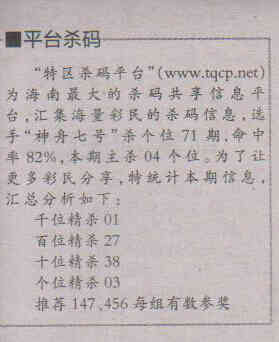 ■平台杀码
“特区杀码平台”(www.tqcp.net)
为海南最大的杀码共享信息平
台,汇集海量彩民的杀码信息,选
手“神舟七号”杀个位 71 期,命中
率 82%,本期主杀 04 个位。为了让
更多彩民分享,特统计本期信息,
汇总分析如下:
千位精杀 01
百位精杀 27
十位精杀 38
个位精杀 03
推荐 147、456 每组有数参奖